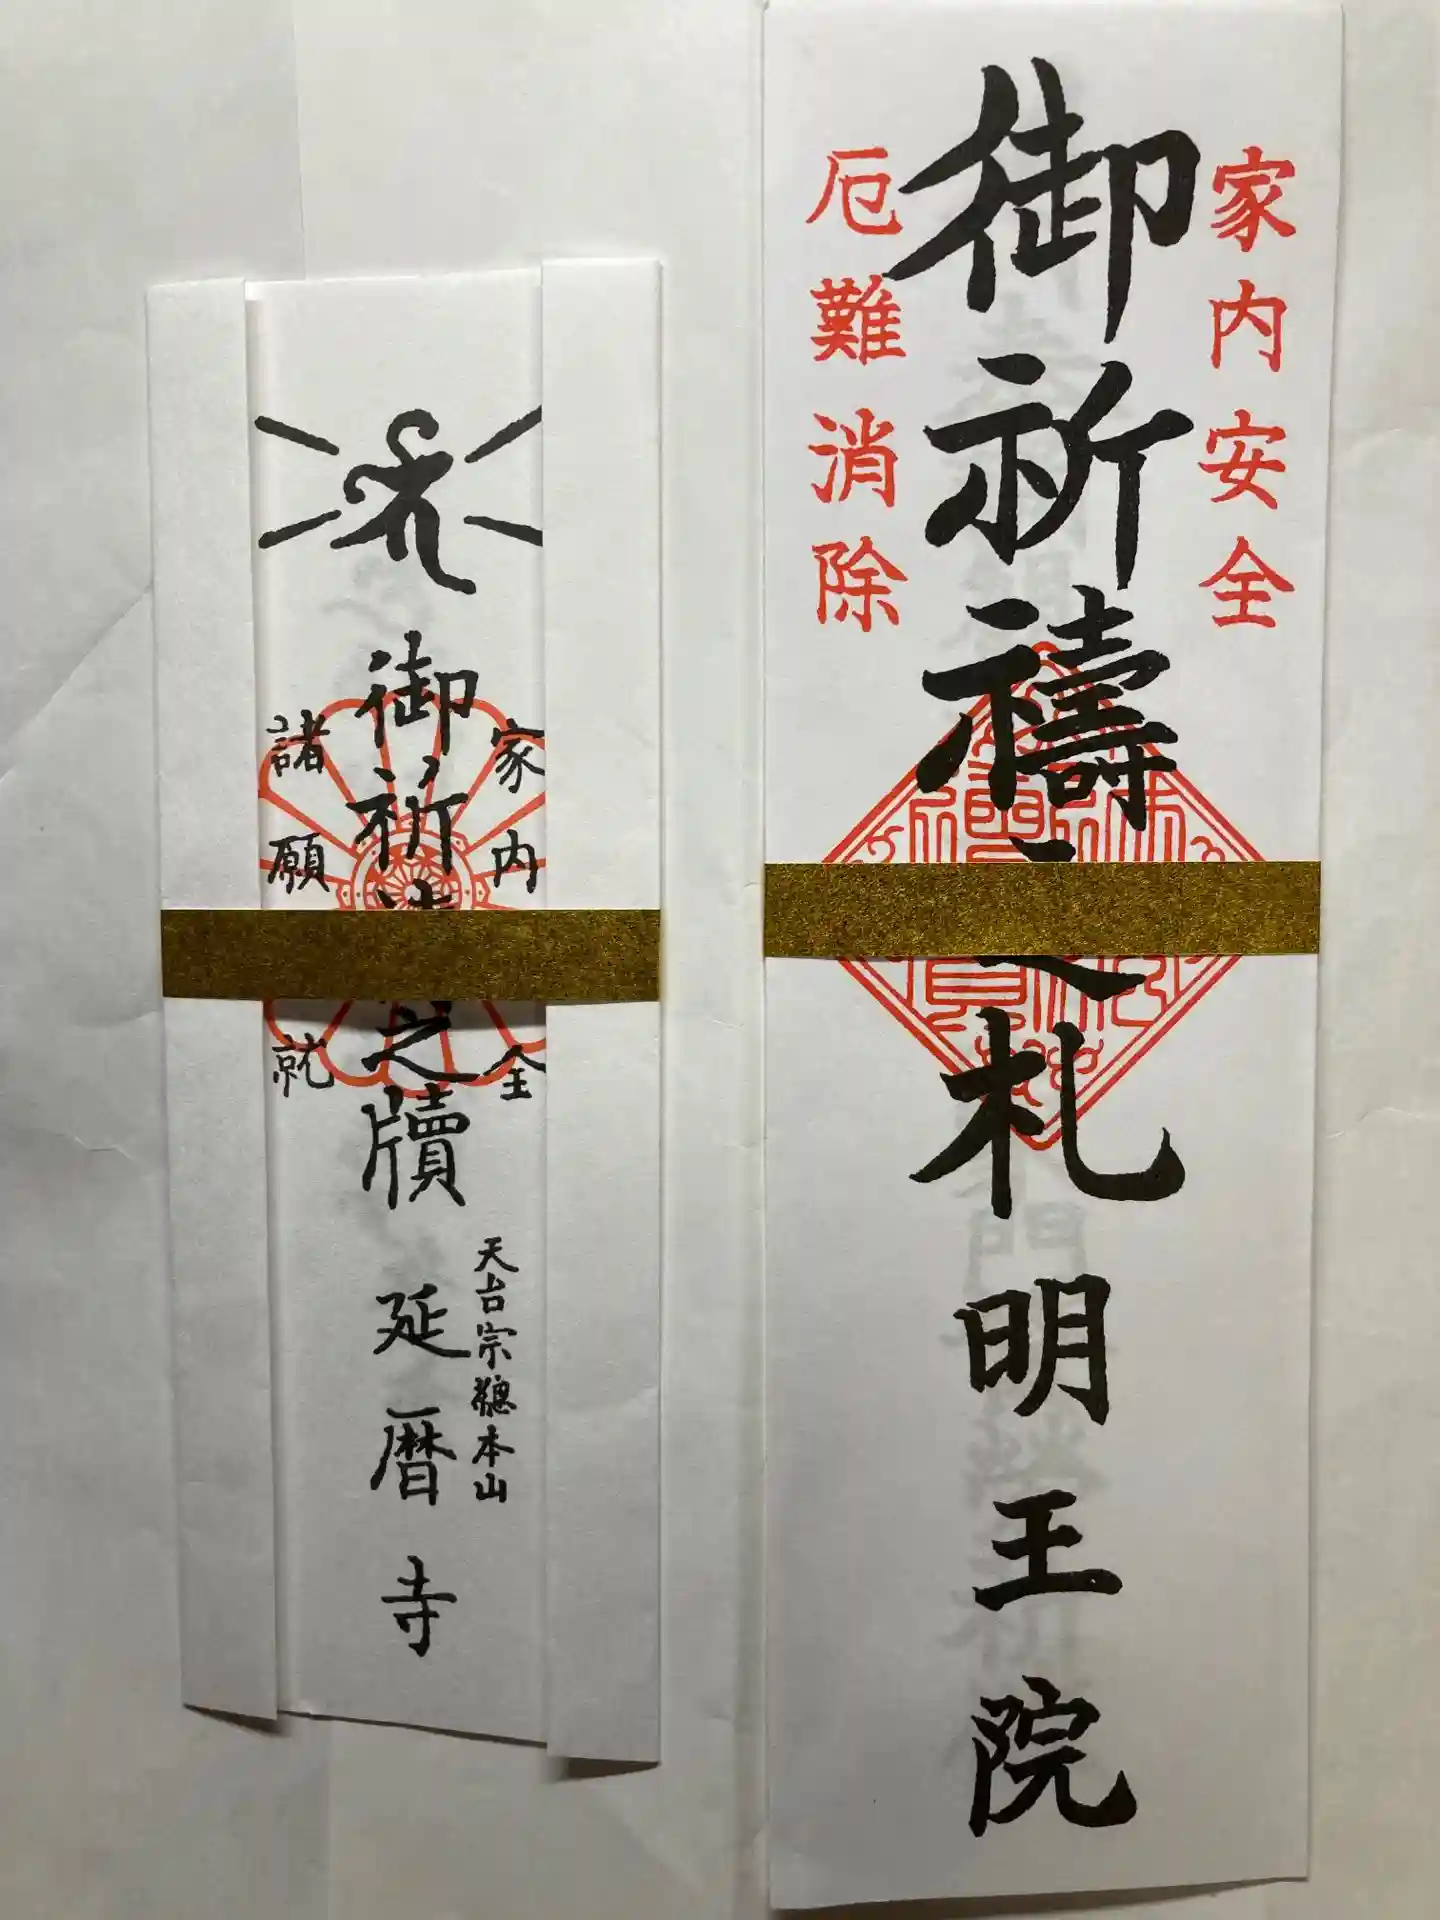 家内安全
御祈禱之札 明王院
厄難消除
家内 全
御祈 之牘
諸願 就
天台宗總本山
延暦寺